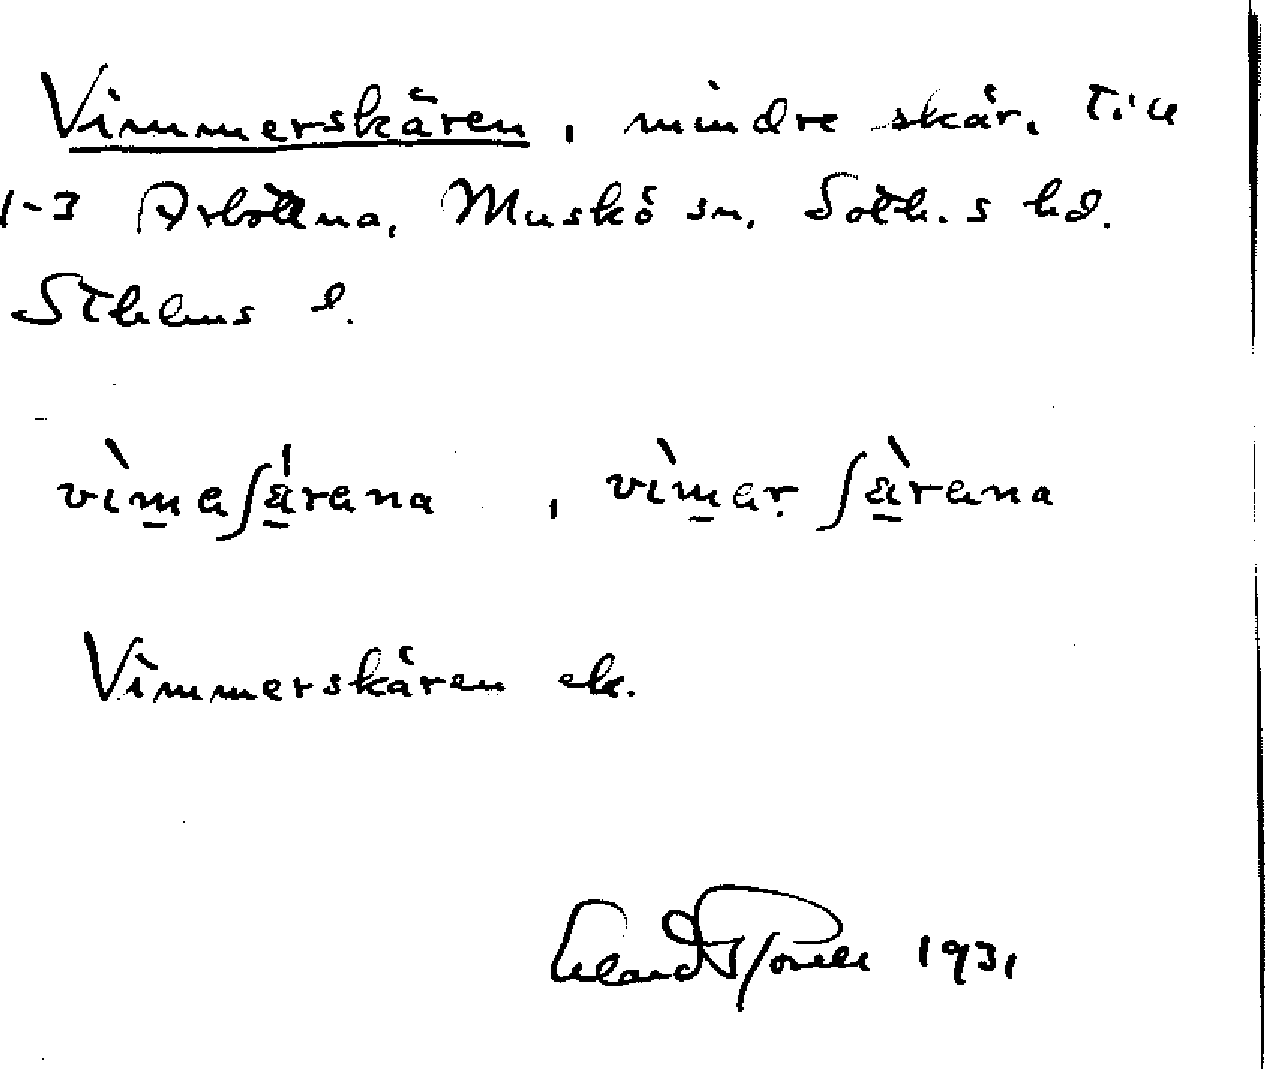 Vimmerskären, mindre skär. Till
1-3 Arbottna, Muskö sn, Soth.s hd.
Sthlms l.
vìmaʃárana, vìmar ʃàrana
Vimmerskären ek.
Erland Rosell 1931